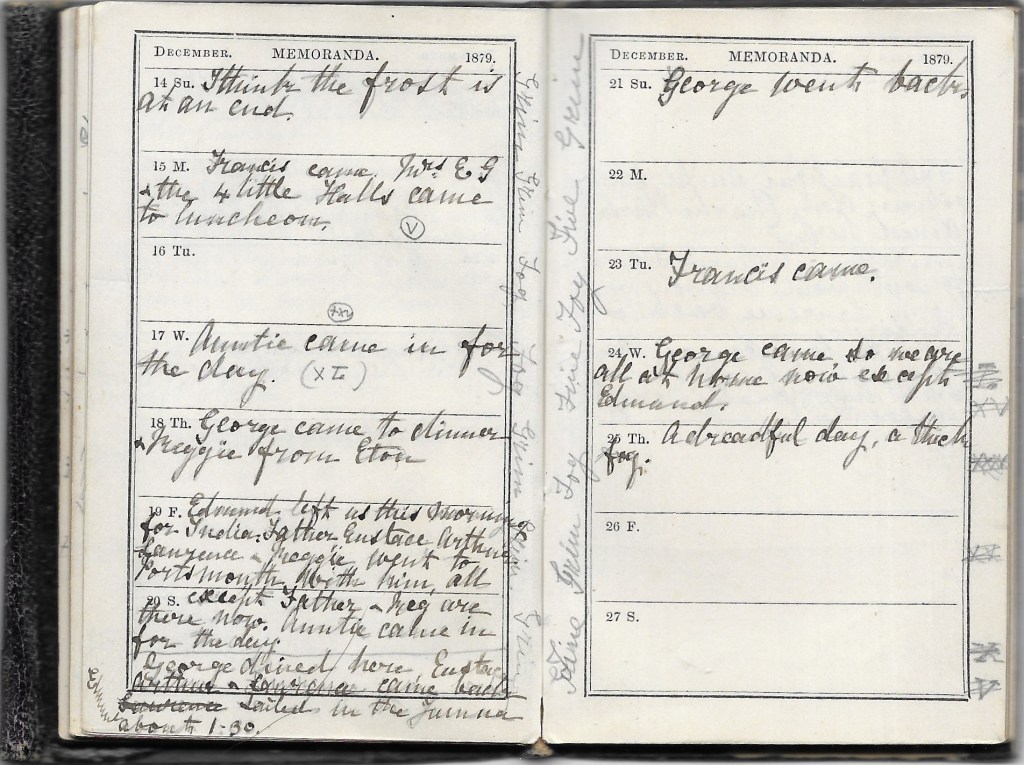 DECEMBER. MEMORANDA. 1879.
14 Su. I think the frost is
at an end.
15 M. Francis came. Mrs E G
& the 4 little Halls came
to luncheon.
V
16 Tu.
XXV
17 W. Auntie came in for
the day. (XL)
18 Th. George came to dinner
& Reggie from Eton
19 F. Edmund left us this morning
for India. Father Eustace Arthur
Lawrence & Reggie went to
Portsmouth with him, all
20 S. except Father & Reg are
there now. Auntie came in
for the day.
George dined here Eustace
Arthur & Lawrence came back
Lawrence sailed in the Jumna
Edmund
about 1-30.
DECEMBER. MEMORANDA. 1879.
21 Su. George went back.
22 M.
23 Tu. Francis came.
24 W. George came so we are
all at home now except
Edmund.
25 Th. A dreadful day, a thick
fog.
26 F.
27 S.